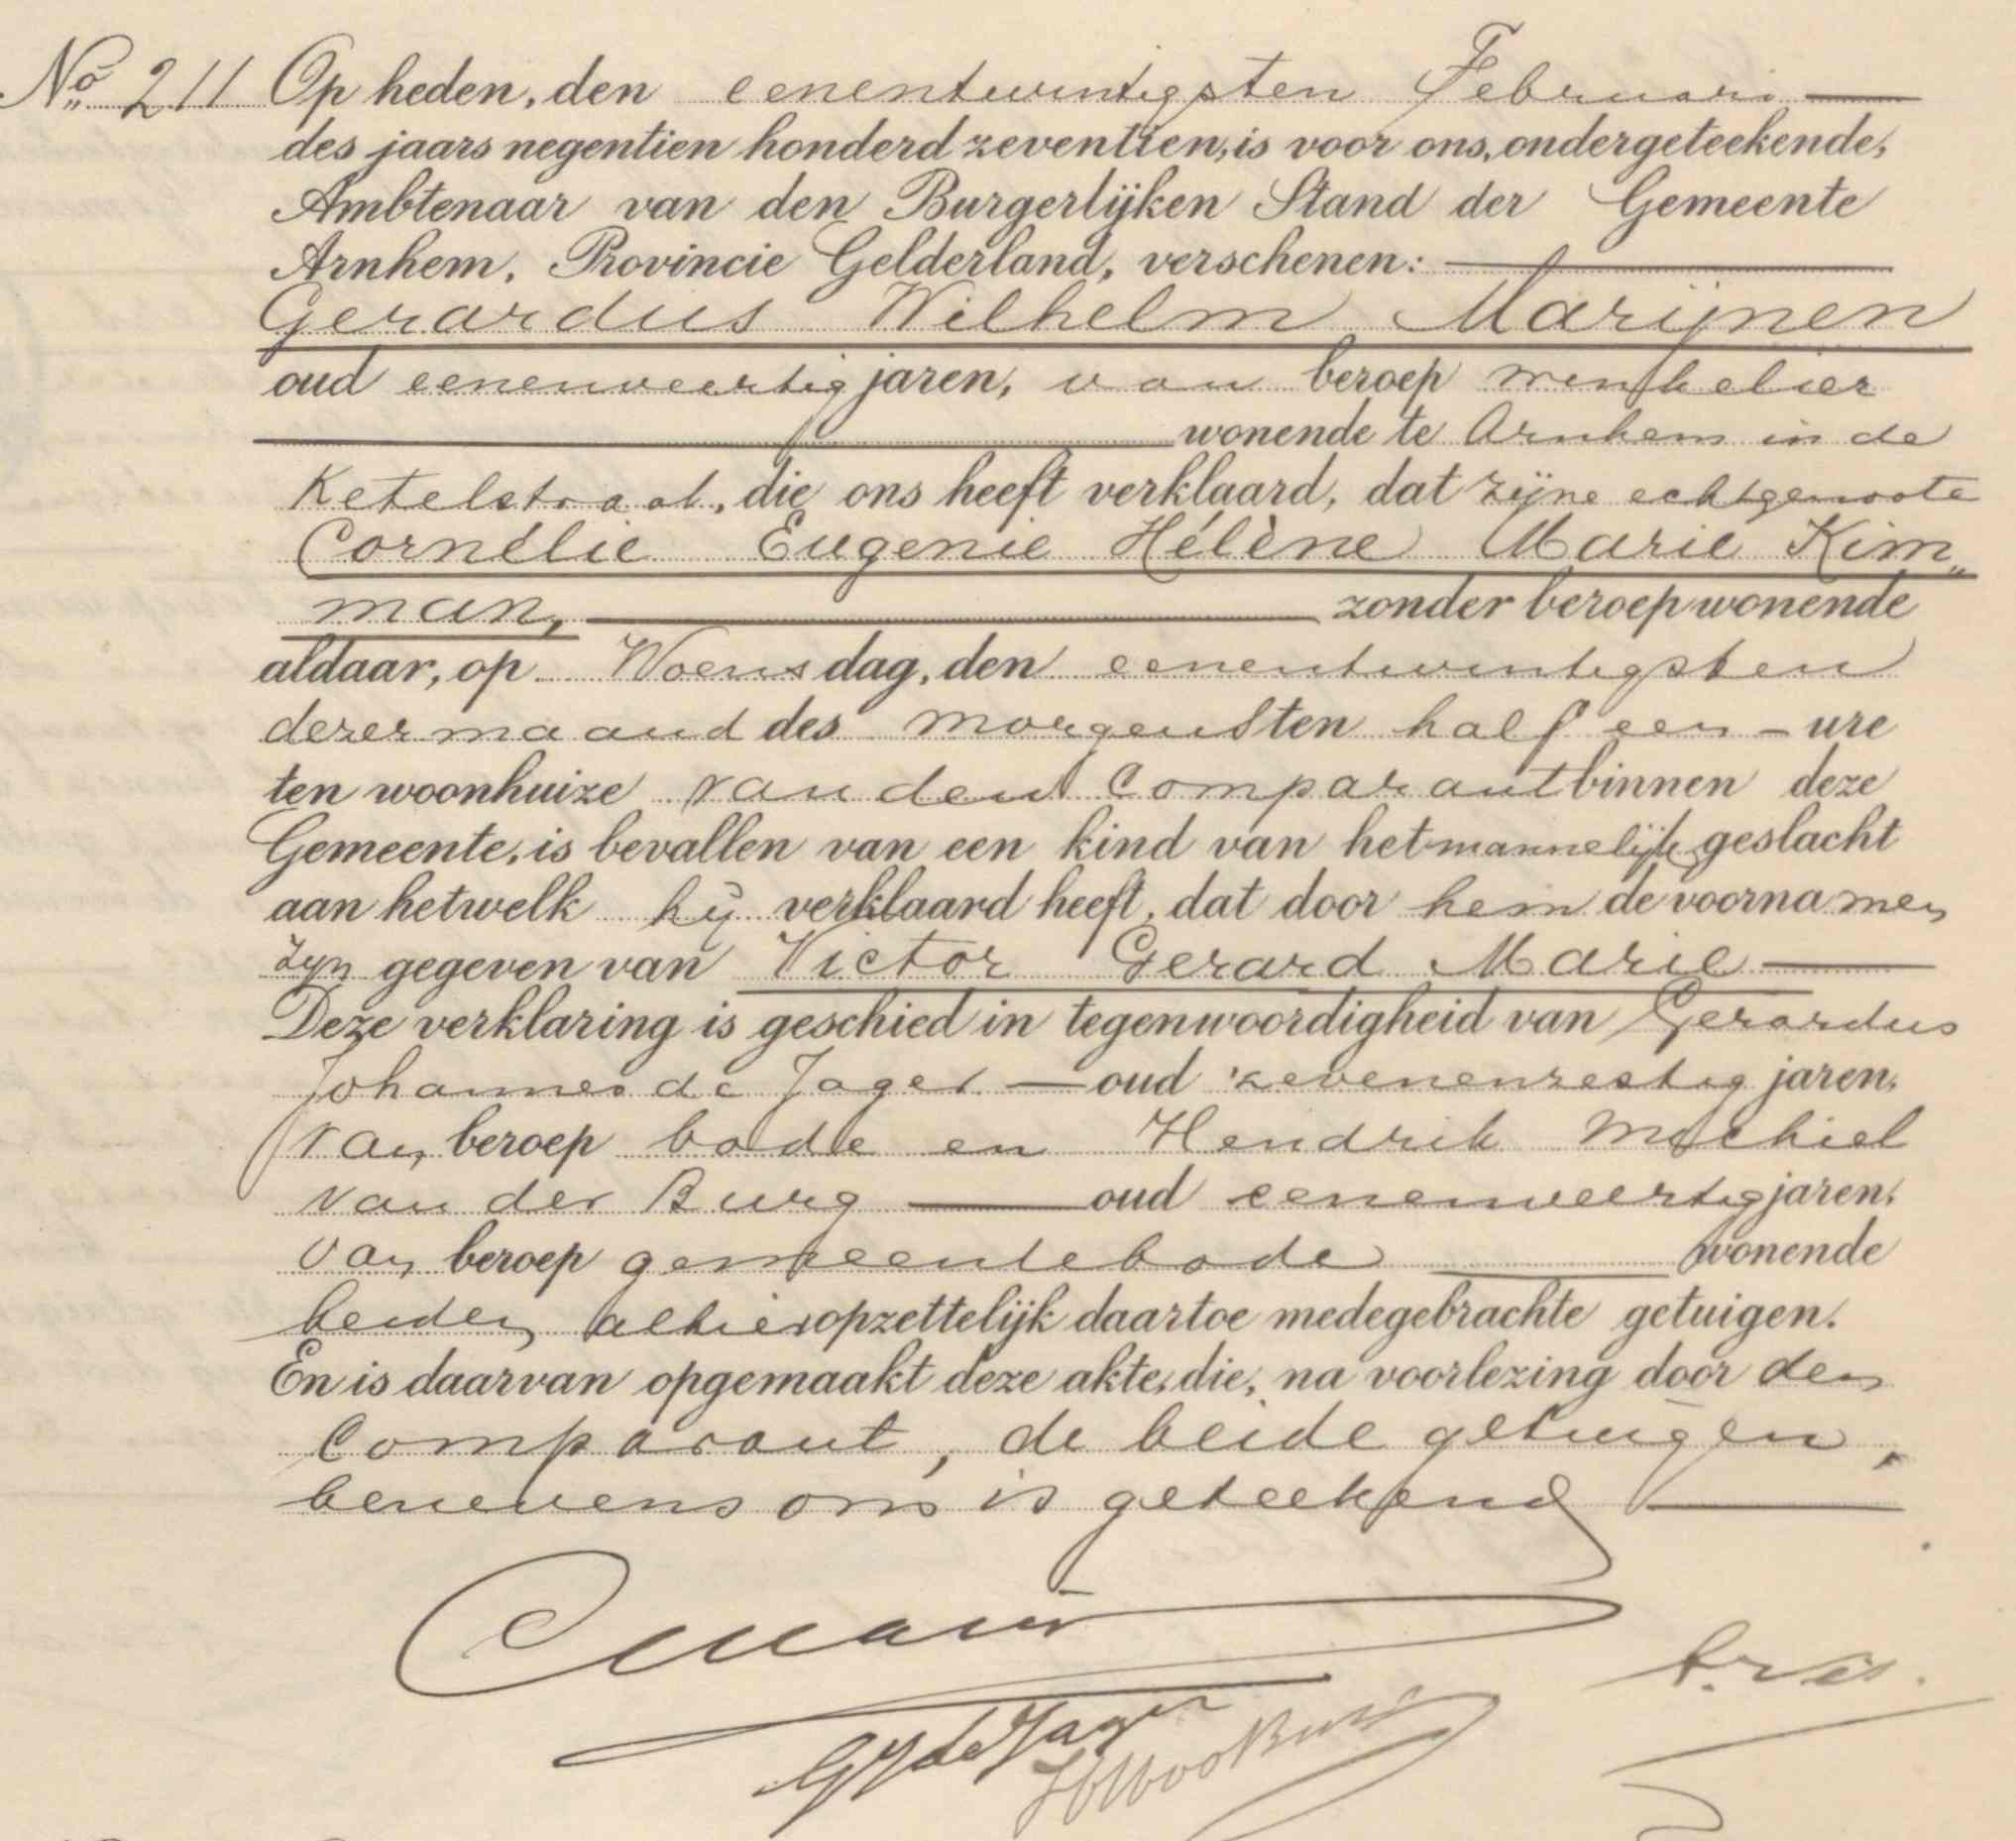 No 211 Op heden, den eenentwintigsten Februari
des jaars negentien honderd zeventien, is voor ons, ondergeteekende,
Ambtenaar van den Burgerlijken Stand der Gemeente
Arnhem, Provincie Gelderland, verschenen:
Gerardus Wilhelm Marijnen
oud eenenveertig jaren, van beroep winkelier
wonende te Arnhem in de
Ketelstraat, die ons heeft verklaard, dat zijne echtgenoote
Cornélie Eugenie Hélène Marie Kim„
man, zonder beroep wonende
aldaar, op Woensdag, den eenentwintigsten
dezer maand des morgens ten half een ure
ten woonhuize van den Comparant binnen deze
Gemeente, is bevallen van een kind van het mannelijk geslacht
aan hetwelk hij verklaard heeft, dat door hem de voornamen
zyn gegeven van Victor Gerard Marie
Deze verklaring is geschied in tegenwoordigheid van Gerardus
Johannes de Jager oud zevenenzestig jaren,
van beroep bode en Hendrik Michiel
van der Burg oud eenenveertig jaren,
van beroep gemeentebode wonende
beiden alhier opzettelijk daartoe medegebrachte getuigen.
En is daarvan opgemaakt deze akte, die, na voorlezing door den
Comparant, de beide getuigen,
benevens ons is geteekend
GJ de Jager